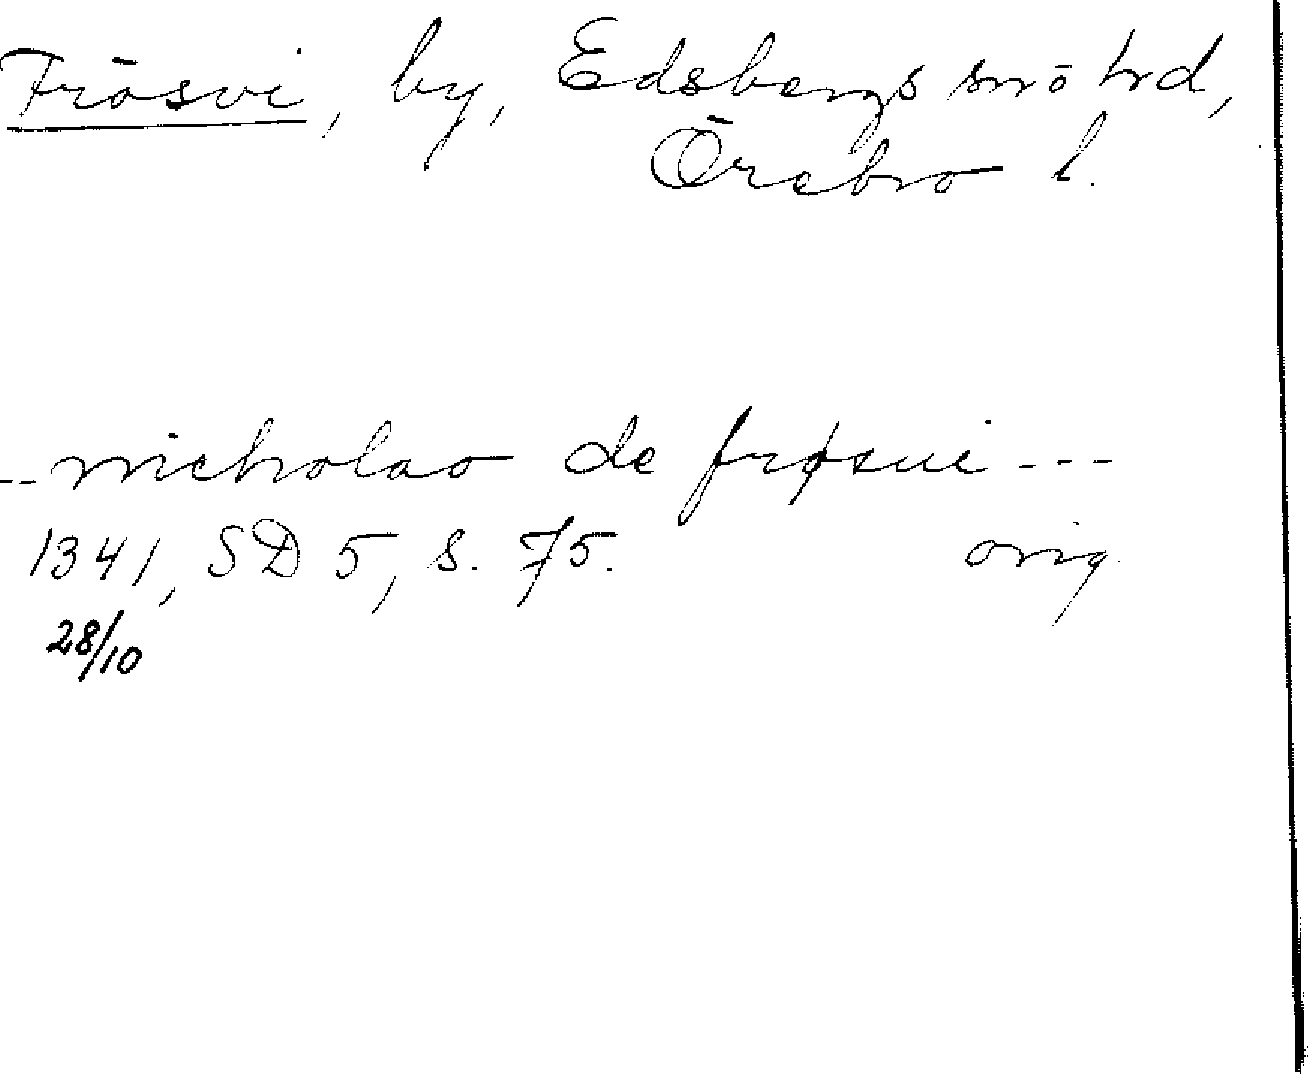 Frösvi, by, Edsbergs sn o hrd,
Örebro l.
-- nicholao de frøsui ---
1341, SD 5, s. 75. orig
28/10